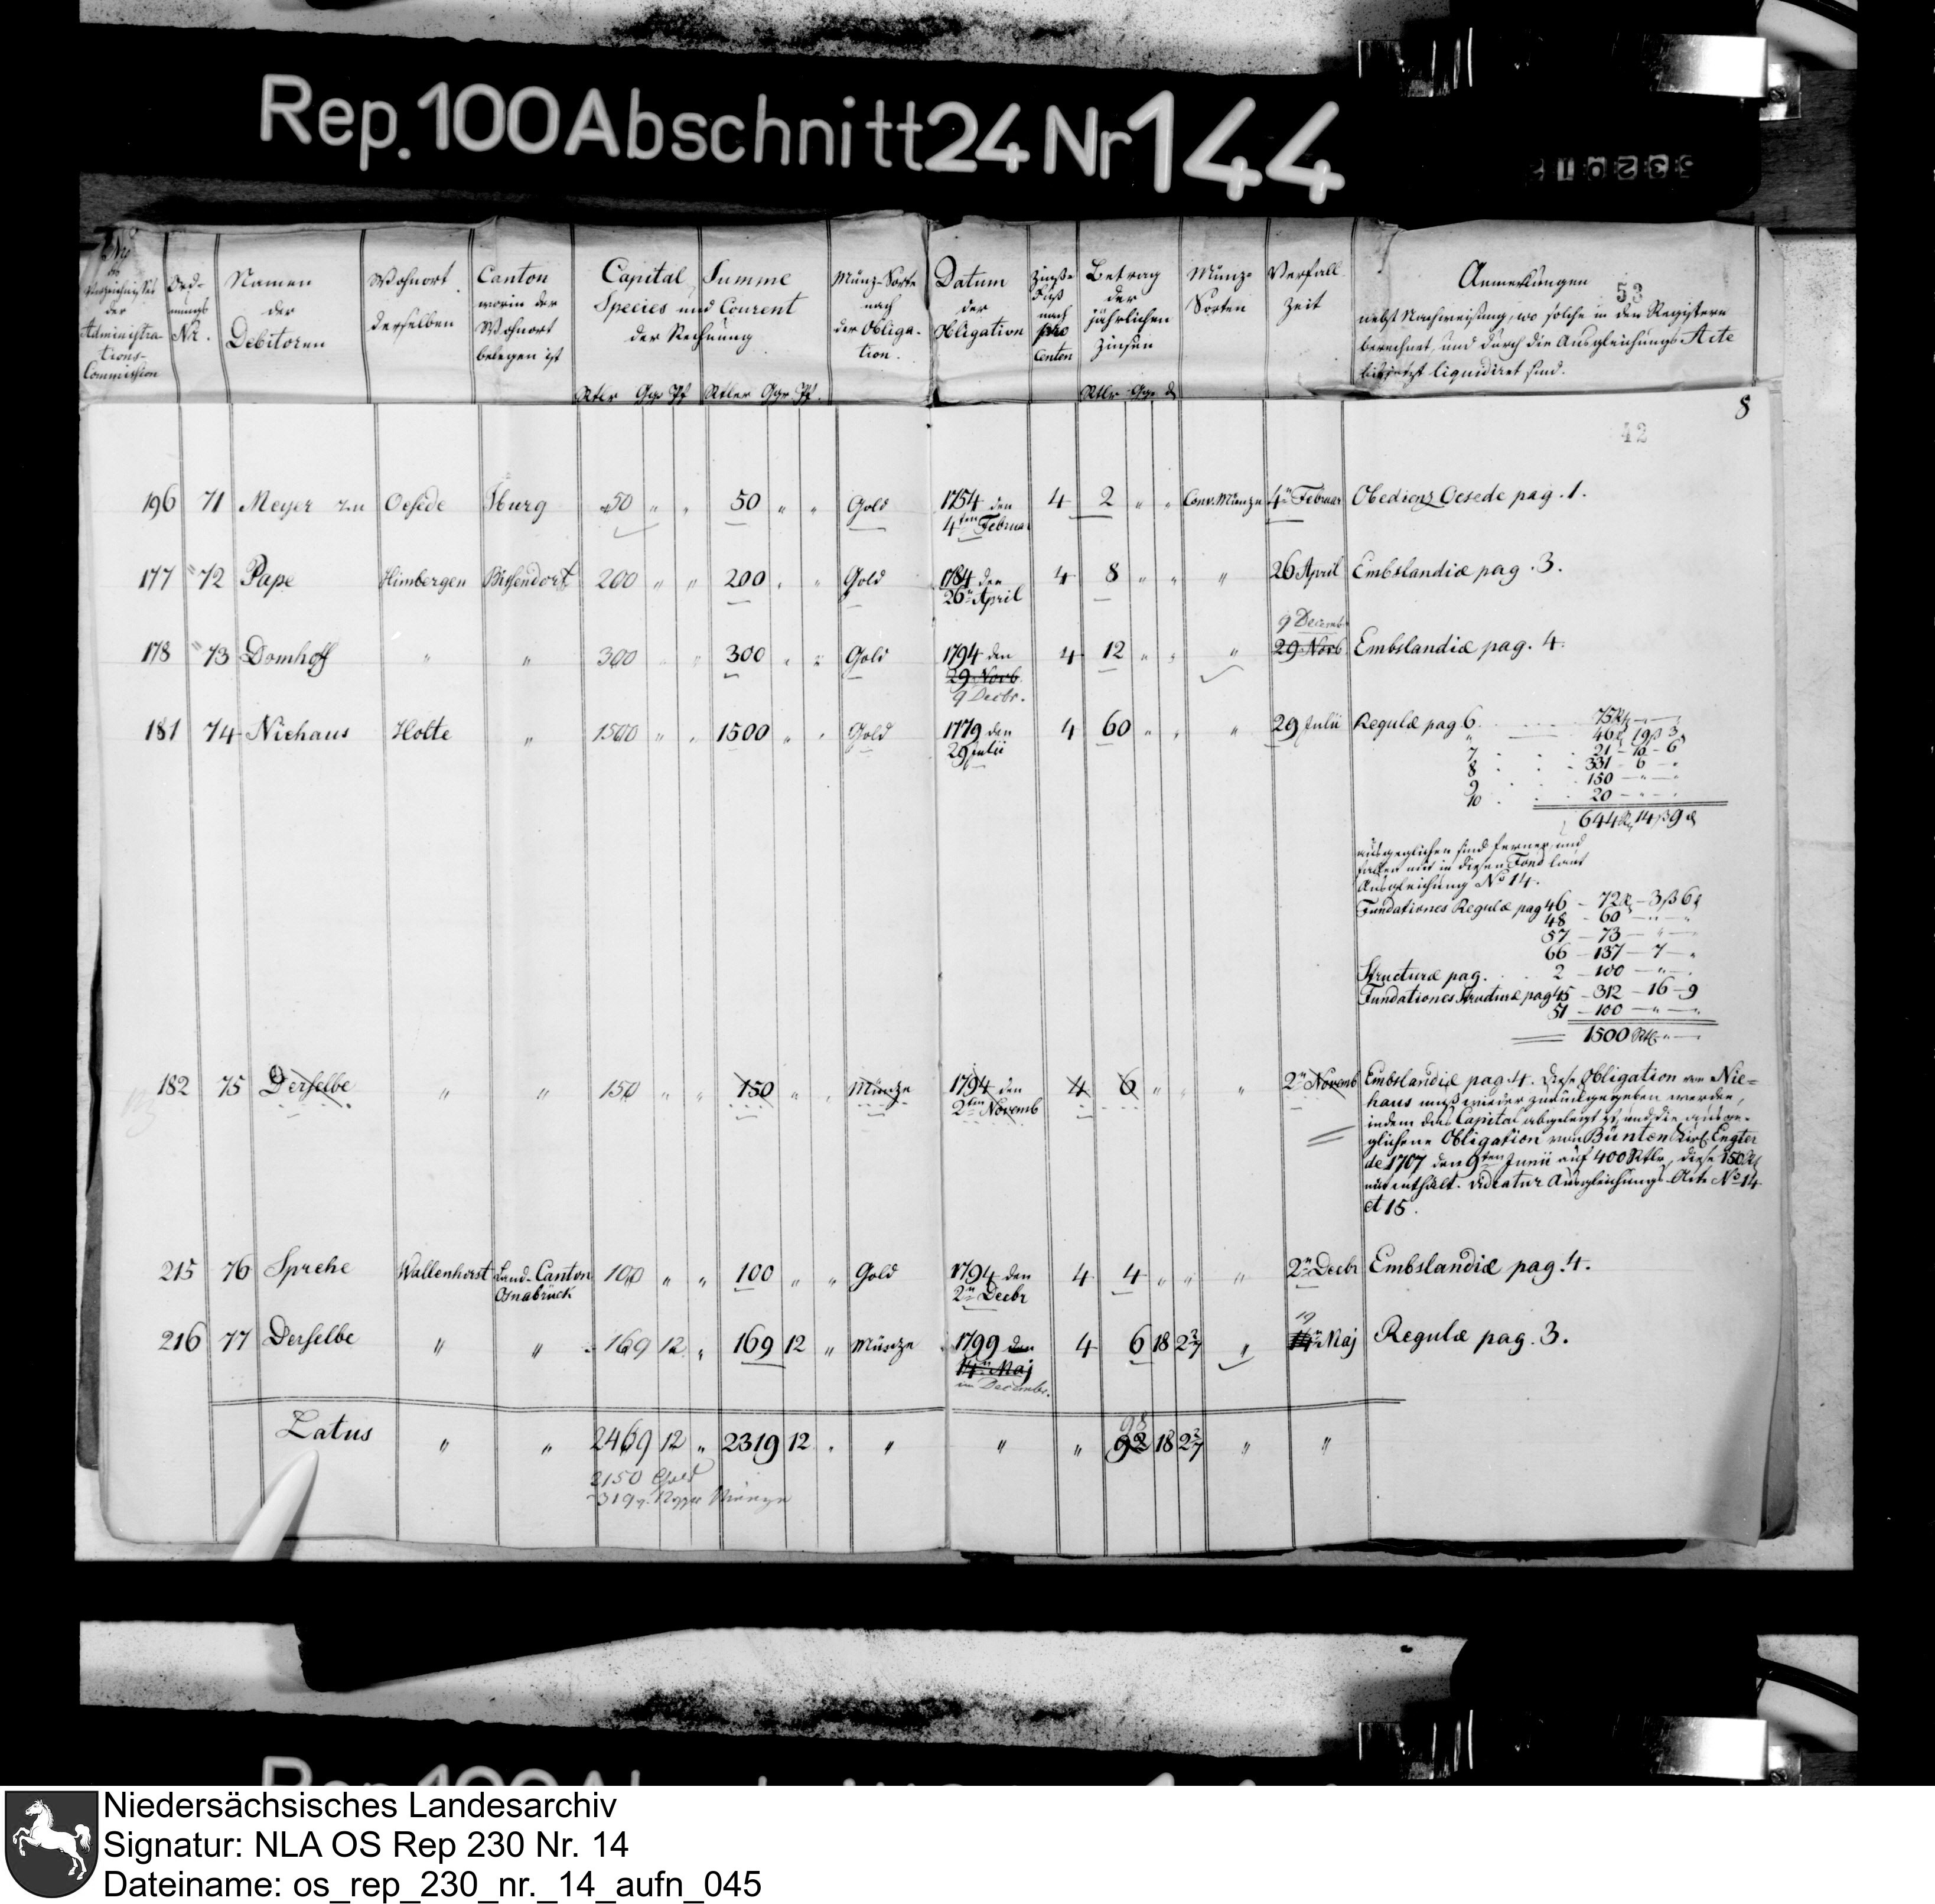 Rep. 100 Abschnitt 24 Nr 144
Nro des Verzeichnisses der Administra-tions-Commission
Ord-nungs Nr.
Namen der Debitoren
Wohnort derselben
Canton worin der Wohnort belegen ist
Capital Summe
Species und Courent
der Rechnung
Rtlr Ggr Pf Rtler Ggr Pf.
Münz-Sorte nach der Obliga-tion.
Datum der Obligation
Zinsfuß nach pro Centen
Betrag der jährlichen Zinsen
Rtlr Ggr d
Münz-Sorten
Verfall Zeit
Anmerkungen
53
nebst Nachweisung, wo solche in den Registern
berechnet, und durch die Ausgleichungs Acte
liquidiret sind.
8
42
196 71 Meyer zu Oesede Iburg 50 " " 50 " " Gold 1754 den 4ten Februar 4 2 " " Conv. Münze 4n Februar Obedienz Oesede pag. 1.
177 72 Pape Himbergen Bissendorf 200 " " 200 " " Gold 1784 den 26n April 4 8 " " " 26 April Embslandiæ pag. 3.
9 Decemb
178 73 Domhoff " " 300 " " 300 " " Gold 1794 den 29 Novb 4 12 " " " 29 Novb Embslandiæ pag. 4.
9 Decbr.
181 74 Niehaus Holte " 1500 " " 1500 " " Gold 1779 den 29 Julii 4 60 " " " 29 Julii Regulæ pag 6. 75 Rtl
" 46 19 ß 3
7 21 - 10 - 6
8 331 - 6 - "
9 150 - " - "
10 20 - " - "
644 Rtl 14 ß 9 d
ausgeglichen sind ferner und
fallen mit in diesen Fond laut
Ausgleichung No 14.
Fundationes Regulæ pag 46 - 72 Rtl - 3 ß 6 d
48 - 60 - " - "
57 - 73 - " - "
66 - 137 - 7 - "
Structuræ pag. 2 - 100 - " - "
Fundationes Structuræ pag 45 - 312 - 16 - 9
51 - 100 - " - "
1500 Rtl - " - "
182 75 Derselbe " " 150 " " 150 " " Münze 1794 den 2ten Novemb 4 6 " " " 2n Novemb Embslandiæ pag 4. Diese Obligation von Nie-
haus muß wieder zurückgegeben werden,
indem das Capital abgelegt ist, und die ausge-
glichene Obligation von Bünten Kirsp. Engter
de 1707 den 9ten Junii auf 400 Rtlr, diese 150 Rtl
mit enthält. Videatur Ausgleichungs-Acte No 14
et 15.
215 76 Sprehe Wallenhorst Land-Canton Osnabrück 100 " " 100 " " Gold 1794 den 2n Decbr 4 4 " " " 2n Decbr Embslandiæ pag. 4.
19
216 77 Derselbe " " 169 12 " 169 12 " Münze 1799 den 14n Maj 4 6 18 2 2/7 " 14n Maj Regulæ pag. 3.
im Decembr.
98
Latus " " 2469 12 " 2319 12 " " " " 92 18 2 2/7 " "
2150 Gold
319 r. 12 ggr Münze
Niedersächsisches Landesarchiv
Signatur: NLA OS Rep 230 Nr. 14
Dateiname: os_rep_230_nr._14_aufn_045